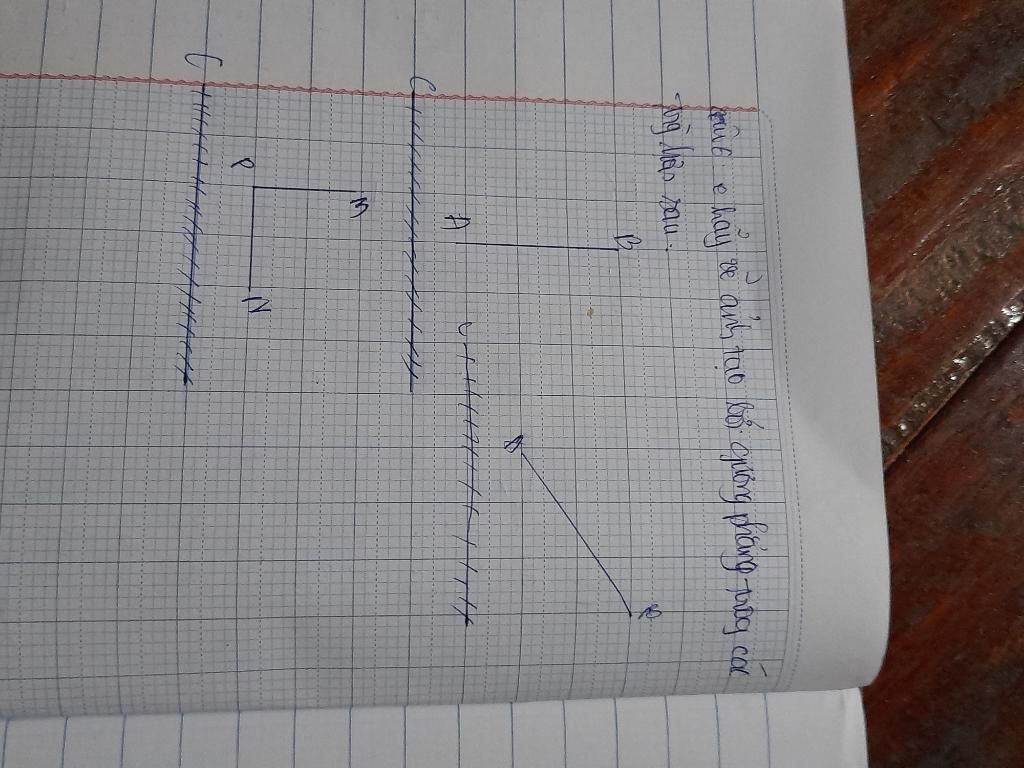 câu 6 e hãy vẽ ảnh tạo bởi gương phẳng trog các
hợp sau:
B
A
M
P
N